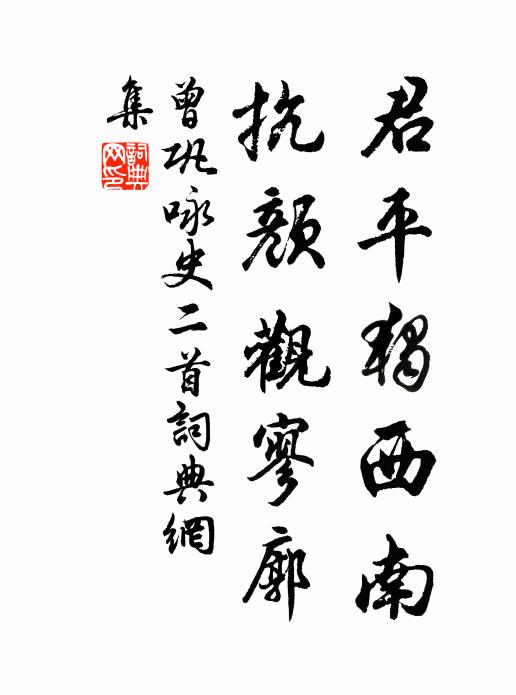 君平獨西南
抗顏觀寥廓
曾巩咏史二首詞典網
集
詞典
网印